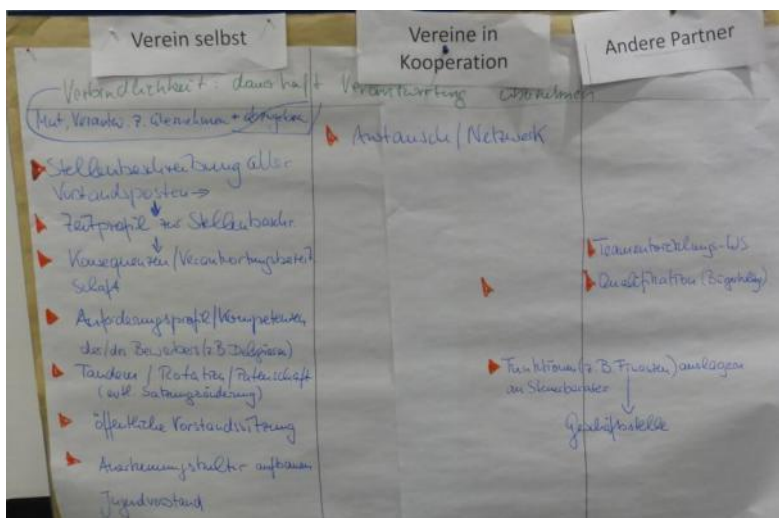 Verein selbst
Vereine in
Kooperation
Andere Partner
Verbindlichkeit: dauerhaft Verantwortung übernehmen
Mut, Verantw. z. übernehmen + abzugeben
Stellenbeschreibung aller
Vorstandsposten →
Zeitprofil zur Stellenbeschr.
Konsequenzen/Verantwortungsbereit
schaft
Anforderungsprofil/Kompetenzen
des/der Bewerbers (z.B.
Tandem / Rotation / Patenschaft
(evtl. Satzungsänderung)
öffentliche Vorstandssitzung
Anerkennungskultur aufbauen
Jugendvorstand
Austausch / Netzwerk
Teamentwicklungs-WS
Qualifikation
Funktionen (z.B. Finanzen) auslagern
an Steuerberater
Geschäftsstelle